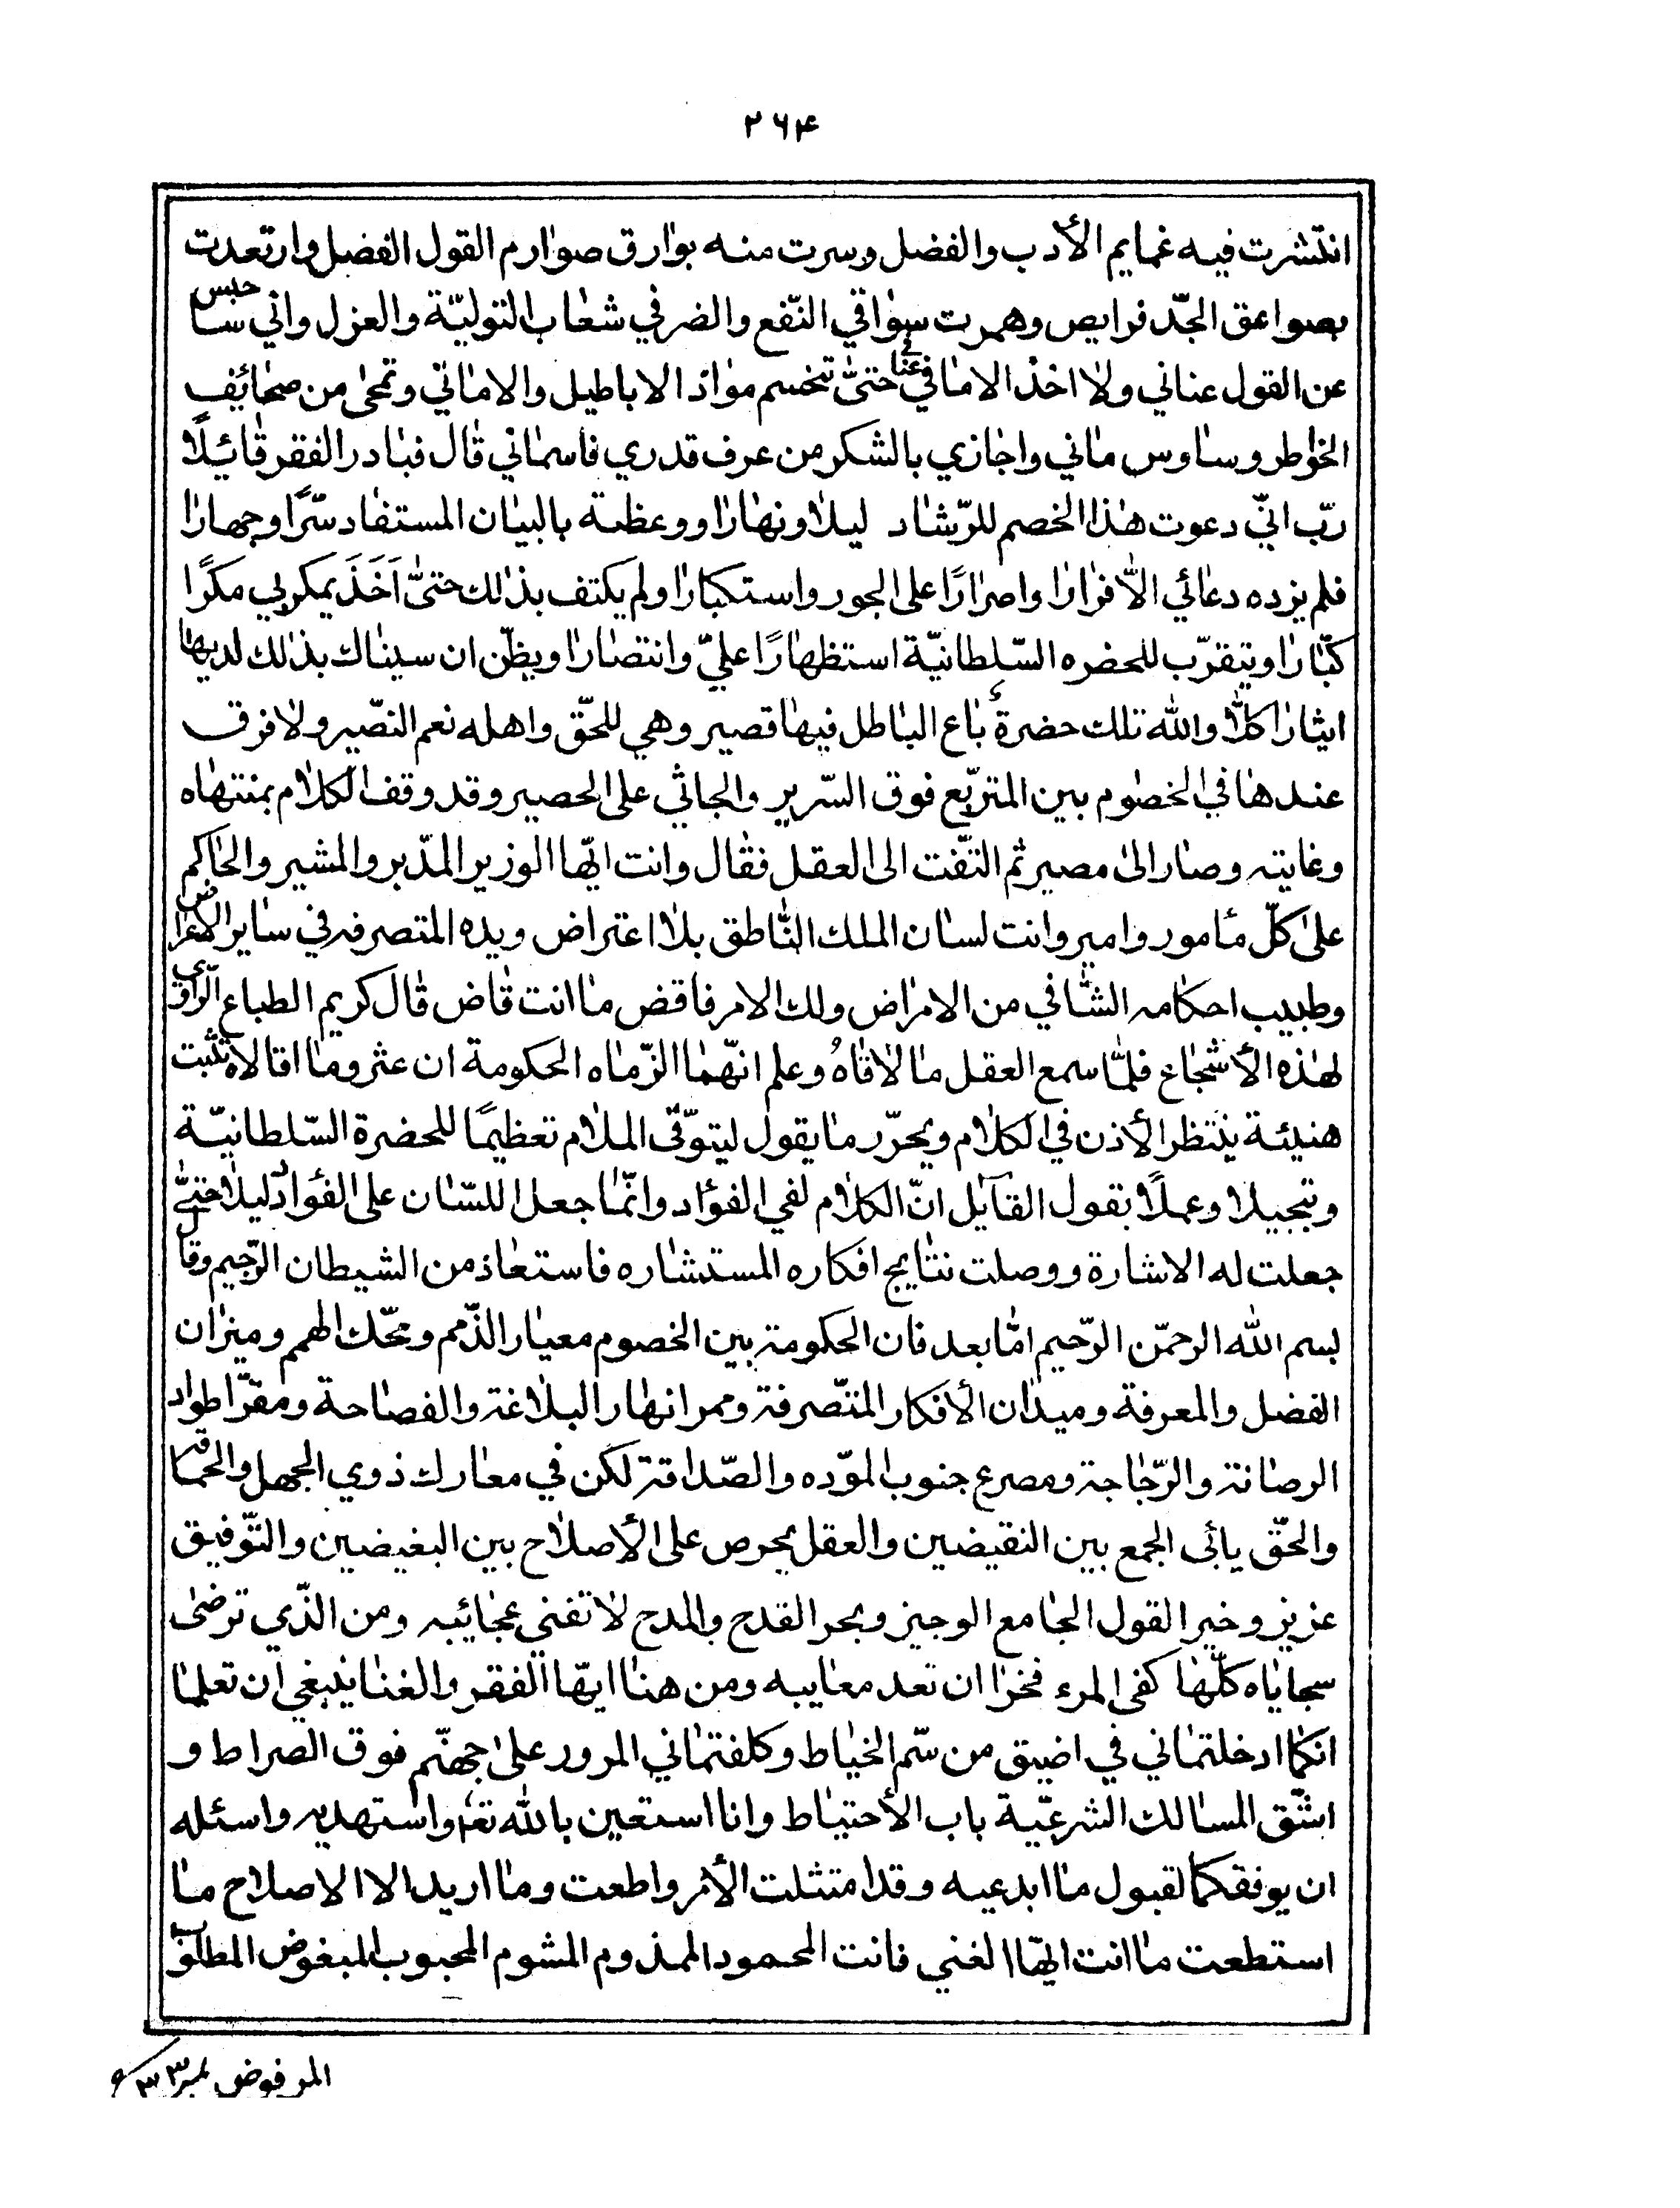 ٢٦۴
انتشرت فيه غمايم الأدب والفضل وسرت منه بوارق صوارم القول الفضل وارتعدت
بصواعق الجّد فرايص وهمرت سواقي النّفع والضر في شعاب التوليّة والعزل واني سأحبس
عن القول عناني ولا اخذ الاماني في عنا حتىّ تنحسم موادّ الاباطيل والاماني وتمحىٰ من صحائف
الخواطر وساوس ماني واجازي بالشكر من عرف قدري فاسماني قال فبادر الفقر قائلًا
ربّ انيّ دعوت هذا الخصم للرّشاد ليلا ونهارا ووعظته بالبيان المستفاد سرّا وجهارا
فلم يزده دعائي الّا فرارا واصرارًا على الجور واستكبارا ولم يكتف بذلك حتىّ اَخَذَ يمكر بي مكرًا
كبّارا ويتقرّب للحضره السّلطانيّة استظهارًا عليّ وانتصارا ويظّن ان سيناك بذلك لديها
ايثارا كلّا والله تلك حضرةٌ باع الباطل فيها قصير وهي للحّق واهله نعم النصّير ولا فرق
عندها في الخصوم بين المتربّع فوق السّرير والجاثي على الحصير وقد وقف الكلام بمنتهاه
وغايته وصار الىٰ مصير ثم التّفت الى العقل فقال وانت ايّها الوزير المدّبر والمشير والحاكم
علىٰ كلّ مأمور وامير وانت لسان الملك النّاطق بلا اعتراض ويده المتصرفه في ساير الاغراض
وطبيب احكامه الشّافي من الامراض ولك الامر فاقض ما انت قاض قال كريم الطباع الرّاوي
لهذه الأشجاع فلمّا سمع العقل ما لاقاهُ وعلم انهّما الزماه الحكومة ان عثر وما اقالاه تثّبت
هنيئة ينتظر الأذن في الكلام ويحرّر ما يقول ليتوّقى الملام تعظيمًا للحضرة السّلطانيّة
وتبجيلا وعملًا بقول القآيل انّ الكلام لفي الفؤاد وانمّا جعل اللسّان على الفؤاد دليلا حتىّ
جعلت له الاشارة ووصلت نتايج افكاره المستشاره فاستعاذ من الشيطان الرّجيم وقال
بسم الله الرحمّن الرّحيم امّا بعد فان الحكومة بين الخصوم معيار الذّمم ومحّك الهمم وميزان
الفضل والمعرفة وميدان الأفكار المتصّرفة وممر انهار البلاغة والفصاحة ومقرّ اطواد
الرصانة والرّجاجة ومصرع جنوب المودّه والصّداقة لكن في معارك ذوي الجهل والحماقة
والحّق يأبى الجمع بين النقيضين والعقل يحرص على الأصلاح بين البغيضين والتوّفيق
عزيز وخير القول الجامع الوجيز وبحر القدح والمدح لا تفنى عجائبه ومن الذّي ترضىٰ
سجاياه كلّها كفى المرء فخرا ان تعد معايبه ومن هنا ايّها الفقر والغنا ينبغي ان تعلما
انكما ادخلتماني في اضيق من سّم الخياط وكلفتماني المرور علىٰ جهنّم فوق الصراط و
اشّق المسالك الشرعيّة باب الأحتياط وانا استعين بالله تعٰ واستهديه واسئله
ان يوفقكما لقبول ما ابدعيه وقد امتثلت الأمر واطعت وما اريد الا الاصلاح ما
استطعت ما انت ايّها الغني فانت المحمود المذموم المشوم المحبوب المبغوض المطلوب
المرفوض نمبر ٣٣